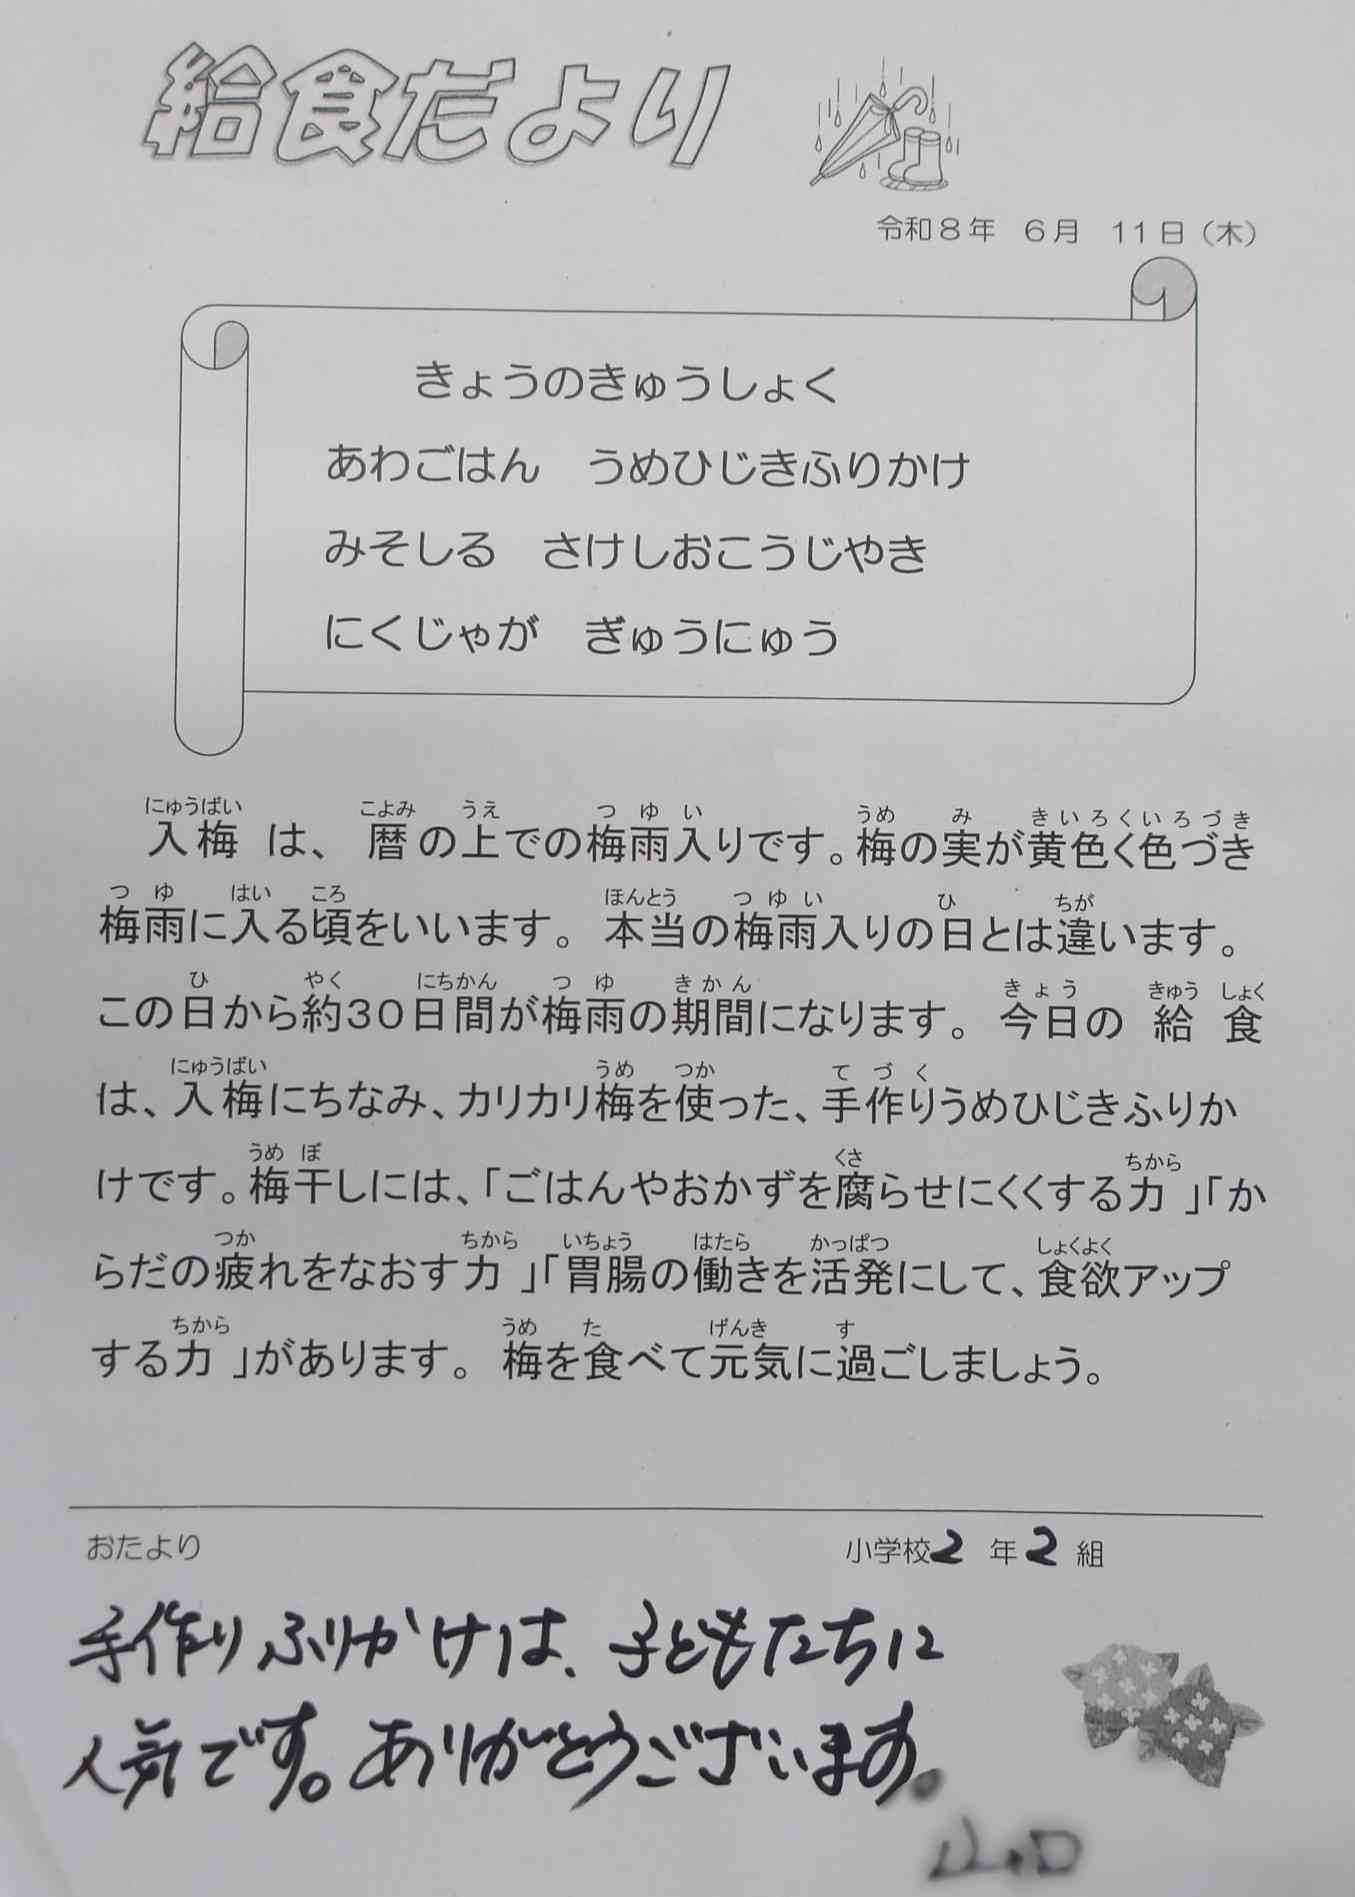 給食だより
令和8年 6月 11日（木）
きょうのきゅうしょく
あわごはん うめひじきふりかけ
みそしる さけしおこうじやき
にくじゃが ぎゅうにゅう
にゅうばい こよみ うえ つゆい うめ み きいろくいろづき
入梅 は、 暦の上での梅雨入りです。梅の実が黄色く色づき
つゆ はい ころ ほんとう つゆい ひ ちが
梅雨に入る頃をいいます。 本当の梅雨入りの日とは違います。
ひ やく にちかん つゆ きかん きょう きゅう しょく
この日から約30日間が梅雨の期間になります。 今日の 給 食
にゅうばい うめ つか てづく
は、入梅にちなみ、カリカリ梅を使った、手作りうめひじきふりか
うめ ぼ くさ ちから
けです。梅干しには、「ごはんやおかずを腐らせにくくする力 」「か
つか ちから いちょう はたら かっぱつ しょくよく
らだの疲れをなおす力 」「胃腸の働きを活発にして、食欲アップ
ちから うめ た げんき す
する力 」があります。 梅を食べて元気に過ごしましょう。
おたより 小学校2 年2 組
手作りふりかけは、子どもたちに
人気です。ありがとうございます。